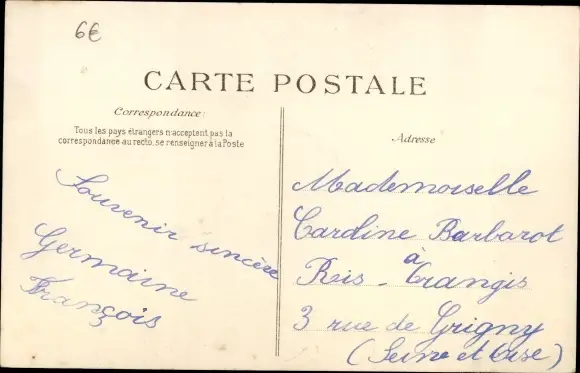 6€
CARTE POSTALE
Correspondance:
Tous les pays étrangers n'acceptent pas la
correspondance au recto, se renseigner à la Poste
Souvenir sincère
Germaine
François
Adresse
Mademoiselle
Caroline Barbarot
à
Ris - Orangis
3 rue de Grigny
(Seine et Oise)